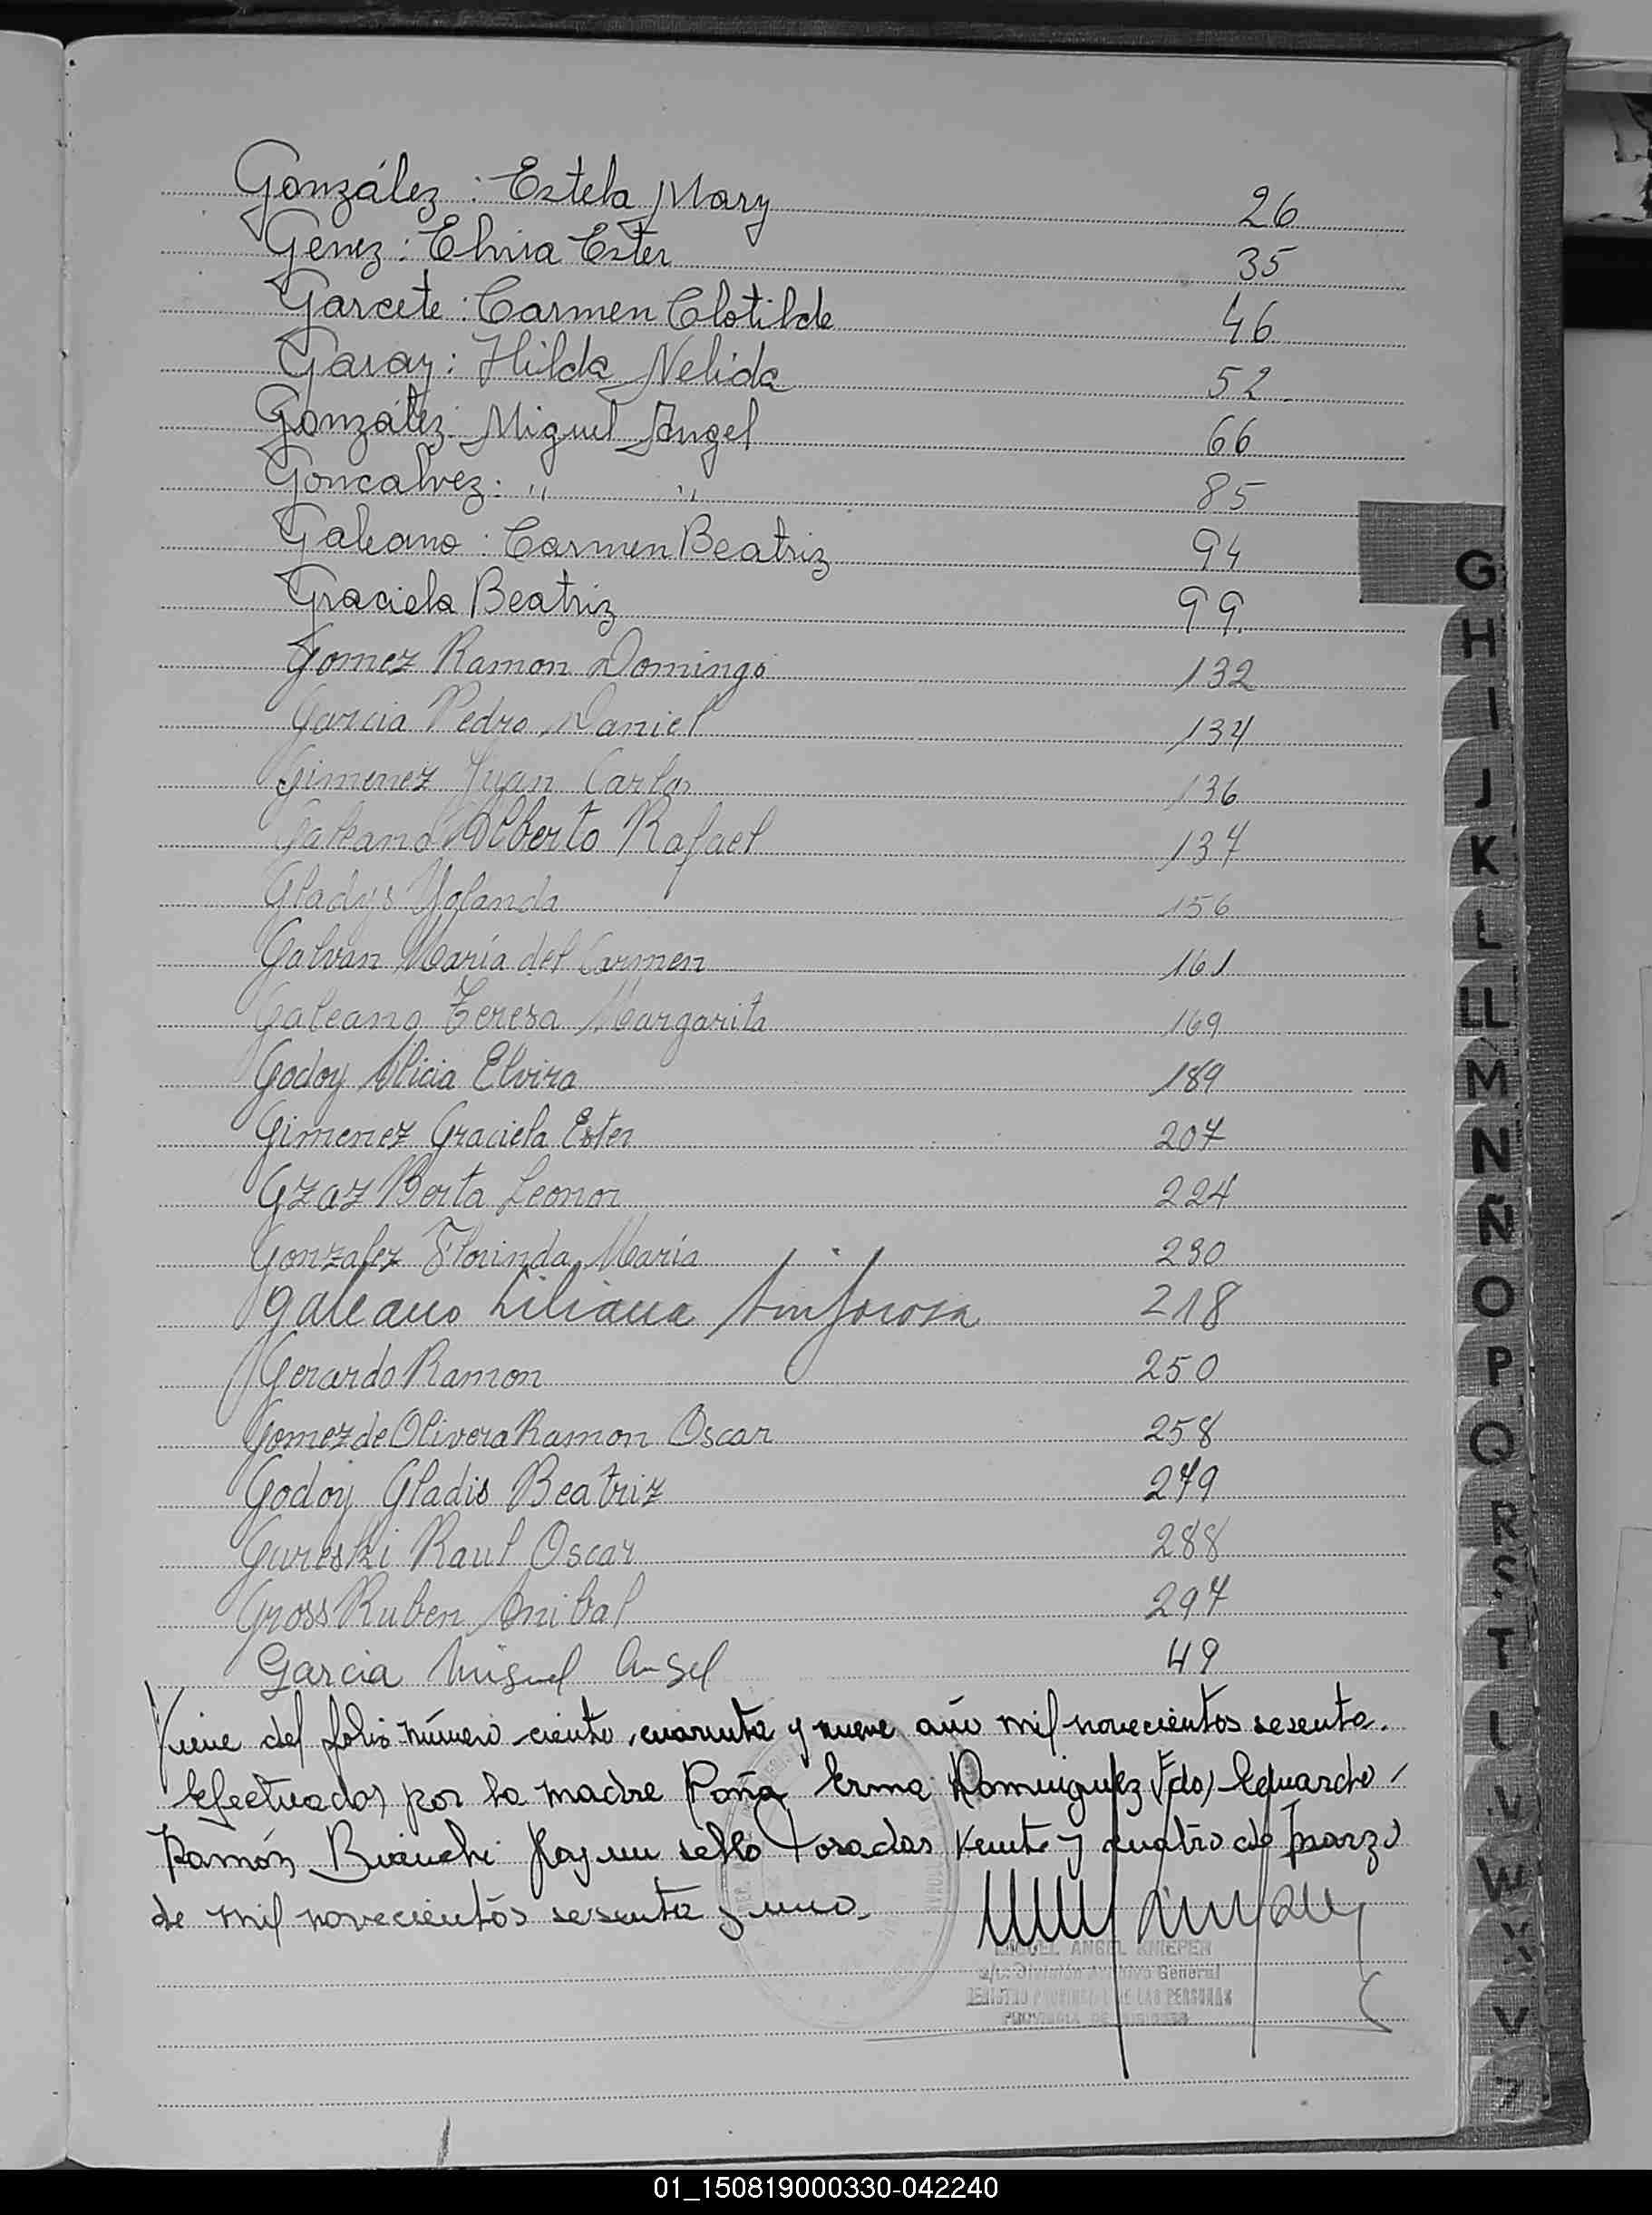 González : Estela Mary 26
Genez : Elvia Ester 35
Garcete : Carmen Clotilde 46
Garay : Hilda Nelida 52
González : Miguel Angel 66
Goncalvez : " " 85
Galeano : Carmen Beatriz 94
Graciela Beatriz 99
Gomez Ramon Domingo 132
Garcia Pedro Daniel 134
Gimenez Juan Carlos 136
Galeano Alberto Rafael 137
Gladys Yolanda 156
Galvan María del Carmen 161
Galeano Teresa Margarita 169
Godoy Alicia Elvira 189
Gimenez Graciela Ester 207
Gzaz Berta Leonor 224
Gonzalez Florinda María 230
Galeano Liliana Sinforosa 218
Gerardo Ramon 250
Gomez de Olivera Ramon Oscar 258
Godoy Gladis Beatriz 279
Gureski Raul Oscar 288
Gross Ruben Anibal 297
Garcia Miguel Angel 49
Viene del folio número ciento cuarenta y nueve año mil novecientos sesenta.
Efectuados por la madre Erma Dominguez Fdo) Eduardo
Ramón Bianchi Hay un sello Posadas veinte y cuatro de marzo
de mil novecientos sesenta y uno.
MIGUEL ANGEL KNIEPER
a/c. División Archivo General
REGISTRO PROVINCIAL DE LAS PERSONAS
PROVINCIA DE MISIONES
G
H
I
J
K
L
LL
M
N
Ñ
O
P
Q
R
S
T
U
V
W
Y
Z
01_150819000330-042240